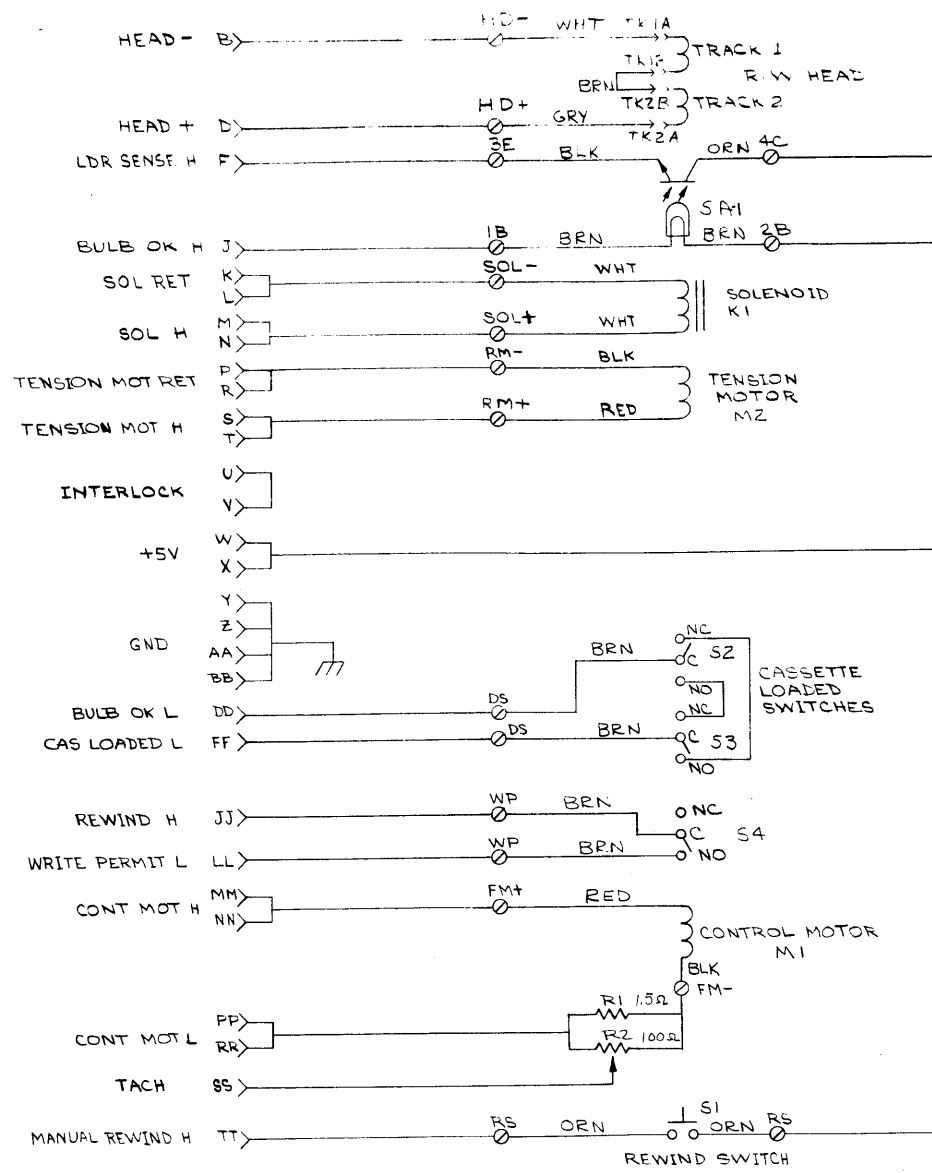 HEAD- B HD- WHT TK1A
TRACK 1
R/W HEAD
BRN
TK2B TRACK 2
HEAD + D HD+ GRY TK2A
LDR SENSE H F 3E BLK ORN 4C
SA1
BULB OK H J 1B BRN BRN 2B
SOL RET K L SOL- WHT
SOLENOID
K1
SOL H M N SOL+ WHT
TENSION MOT RET P R RM- BLK
TENSION
MOTOR
M2
TENSION MOT H S T RM+ RED
INTERLOCK U V
+5V W X
GND Y Z AA BB
BRN NC
C S2
NO
NC
CASSETTE
LOADED
SWITCHES
BULB OK L DD DS
CAS LOADED L FF DS BRN C S3
NO
REWIND H JJ WP BRN NC
C S4
WRITE PERMIT L LL WP BRN NO
CONT MOT H MM NN FM+ RED
CONTROL MOTOR
M1
BLK
FM-
R1 1.5Ω
CONT MOT L PP RR R2 100Ω
TACH SS
MANUAL REWIND H TT RS ORN S1 ORN RS
REWIND SWITCH